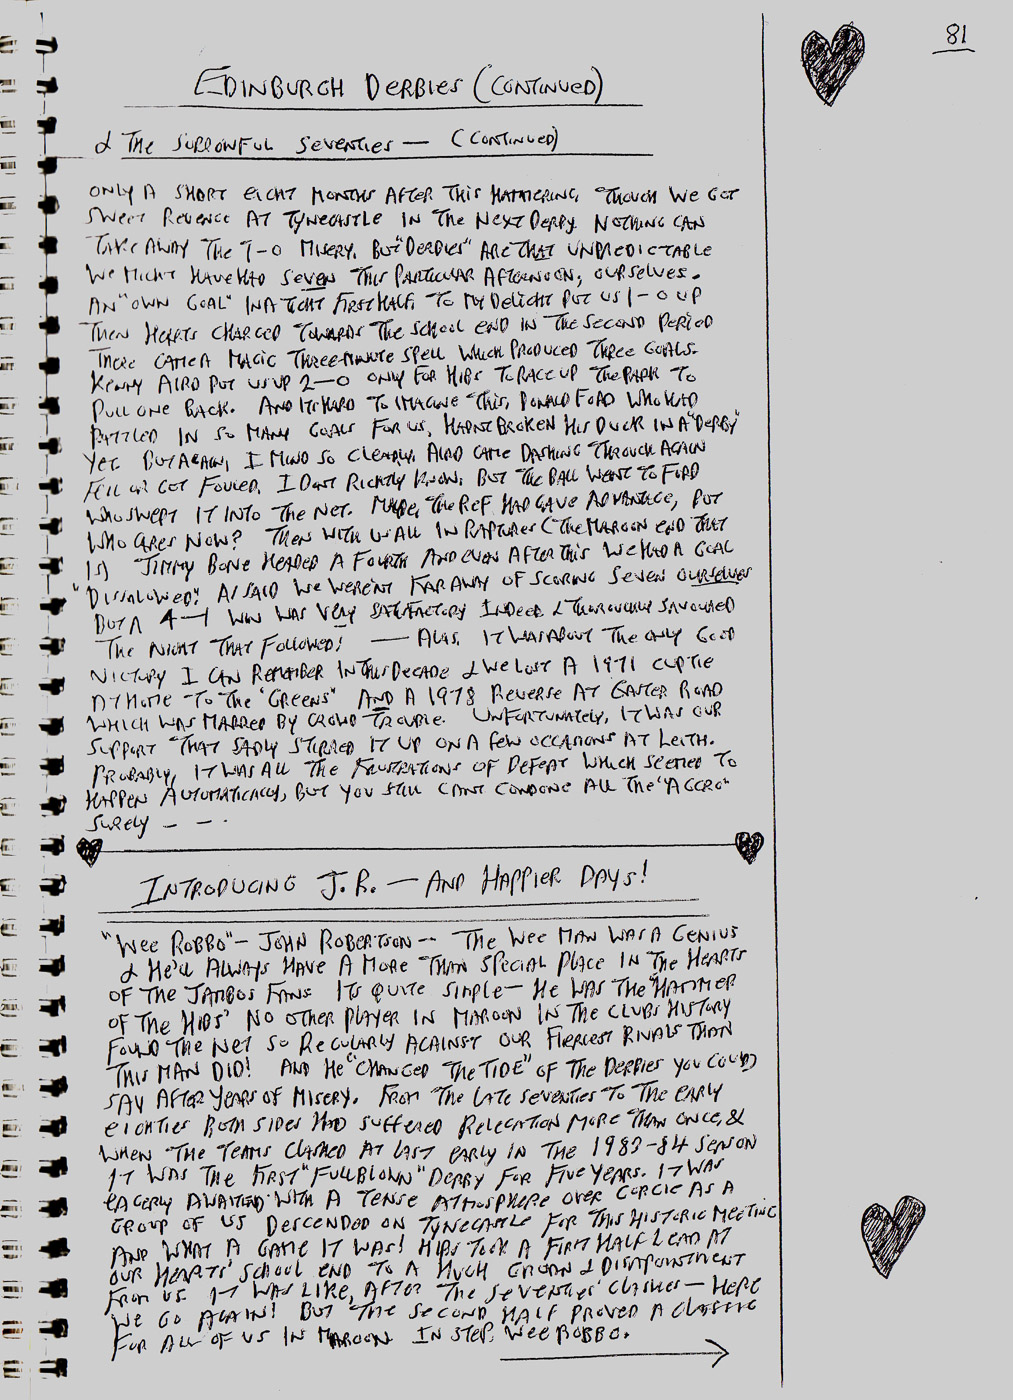 81
EDINBURGH DERBIES (CONTINUED)
& THE SORROWFUL SEVENTIES — (CONTINUED)
ONLY A SHORT EIGHT MONTHS AFTER THIS HAMMERING, THOUGH WE GOT
SWEET REVENGE AT TYNECASTLE IN THE NEXT DERBY. NOTHING CAN
TAKE AWAY THE 7-0 MISERY. BUT "DERBIES" ARE THAT UNPREDICTABLE
WE MIGHT HAVE HAD SEVEN THIS PARTICULAR AFTERNOON, OURSELVES.
AN "OWN GOAL" IN A TIGHT FIRST HALF, TO MY DELIGHT PUT US 1-0 UP
THEN HEARTS CHARGED TOWARDS THE SCHOOL END IN THE SECOND PERIOD
THERE CAME A MAGIC THREE-MINUTE SPELL WHICH PRODUCED THREE GOALS.
KENNY AIRD PUT US UP 2-0 ONLY FOR HIBS TO RACE UP THE PARK TO
PULL ONE BACK. AND ITS HARD TO IMAGINE THIS, DONALD FORD WHO HAD
BATTLED IN SO MANY GOALS FOR US, HADNT BROKEN HIS DUCK IN A "DERBY"
YET. BUT AGAIN, I MIND SO CLEARLY, AIRD CAME DASHING THROUGH AGAIN
FELL OR GOT FOULED, I DONT RIGHTLY KNOW, BUT THE BALL WENT TO FORD
WHO SWEPT IT INTO THE NET. MAYBE, THE REF HAD GAVE ADVANTAGE, BUT
WHO CARES NOW? THEN WITH US ALL IN RAPTURES (THE MAROON END THAT
IS) JIMMY BONE HEADED A FOURTH AND EVEN AFTER THIS WE HAD A GOAL
"DISSALOWED". AS I SAID WE WERE'NT FAR AWAY OF SCORING SEVEN OURSELVES
BUT A 4-1 WIN WAS VERY SATISFACTORY INDEED & THOROUGHLY SAVOURED
THE NIGHT THAT FOLLOWED! — ALAS, IT WAS ABOUT THE ONLY GOOD
VICTORY I CAN REMEMBER IN THIS DECADE & WE LOST A 1971 CUPTIE
AT HOME TO THE "GREENS" AND A 1978 REVERSE AT EASTER ROAD
WHICH WAS MARRED BY CROWD TROUBLE. UNFORTUNATELY, IT WAS OUR
SUPPORT THAT SADLY STIRRED IT UP ON A FEW OCCASIONS AT LEITH.
PROBABLY, IT WAS ALL THE FRUSTRATIONS OF DEFEAT WHICH SEEMED TO
HAPPEN AUTOMATICALLY, BUT YOU STILL CANT CONDONE ALL THE "AGGRO"
SURELY - - .
INTRODUCING J.R. — AND HAPPIER DAYS!
"WEE ROBBO" - JOHN ROBERTSON -- THE WEE MAN WAS A GENIUS
& HE'LL ALWAYS HAVE A MORE THAN SPECIAL PLACE IN THE HEARTS
OF THE JAMBOS FANS ITS QUITE SIMPLE — HE WAS THE "HAMMER
OF THE HIBS" NO OTHER PLAYER IN MAROON IN THE CLUBS HISTORY
FOUND THE NET SO REGULARLY AGAINST OUR FIERCEST RIVALS THAN
THIS MAN DID! AND HE "CHANGED THE TIDE" OF THE DERBIES YOU COULD
SAY AFTER YEARS OF MISERY. FROM THE LATE SEVENTIES TO THE EARLY
EIGHTIES BOTH SIDES HAD SUFFERED RELEGATION MORE THAN ONCE, &
WHEN THE TEAMS CLASHED AT LAST EARLY IN THE 1983-84 SEASON
IT WAS THE FIRST "FULLBLOWN" DERBY FOR FIVE YEARS. IT WAS
EAGERLY AWAITED WITH A TENSE ATMOSPHERE OVER GORGIE AS A
GROUP OF US DESCENDED ON TYNECASTLE FOR THIS HISTORIC MEETING
AND WHAT A GAME IT WAS! HIBS TOOK A FIRST HALF LEAD AT
OUR HEARTS' SCHOOL END TO A HUGH GROAN & DISAPOINTMENT
FROM US. IT WAS LIKE, AFTER THE SEVENTIES' CLASHES — HERE
WE GO AGAIN! BUT THE SECOND HALF PROVED A CLASSIC
FOR ALL OF US IN MAROON IN STEP, WEE ROBBO.